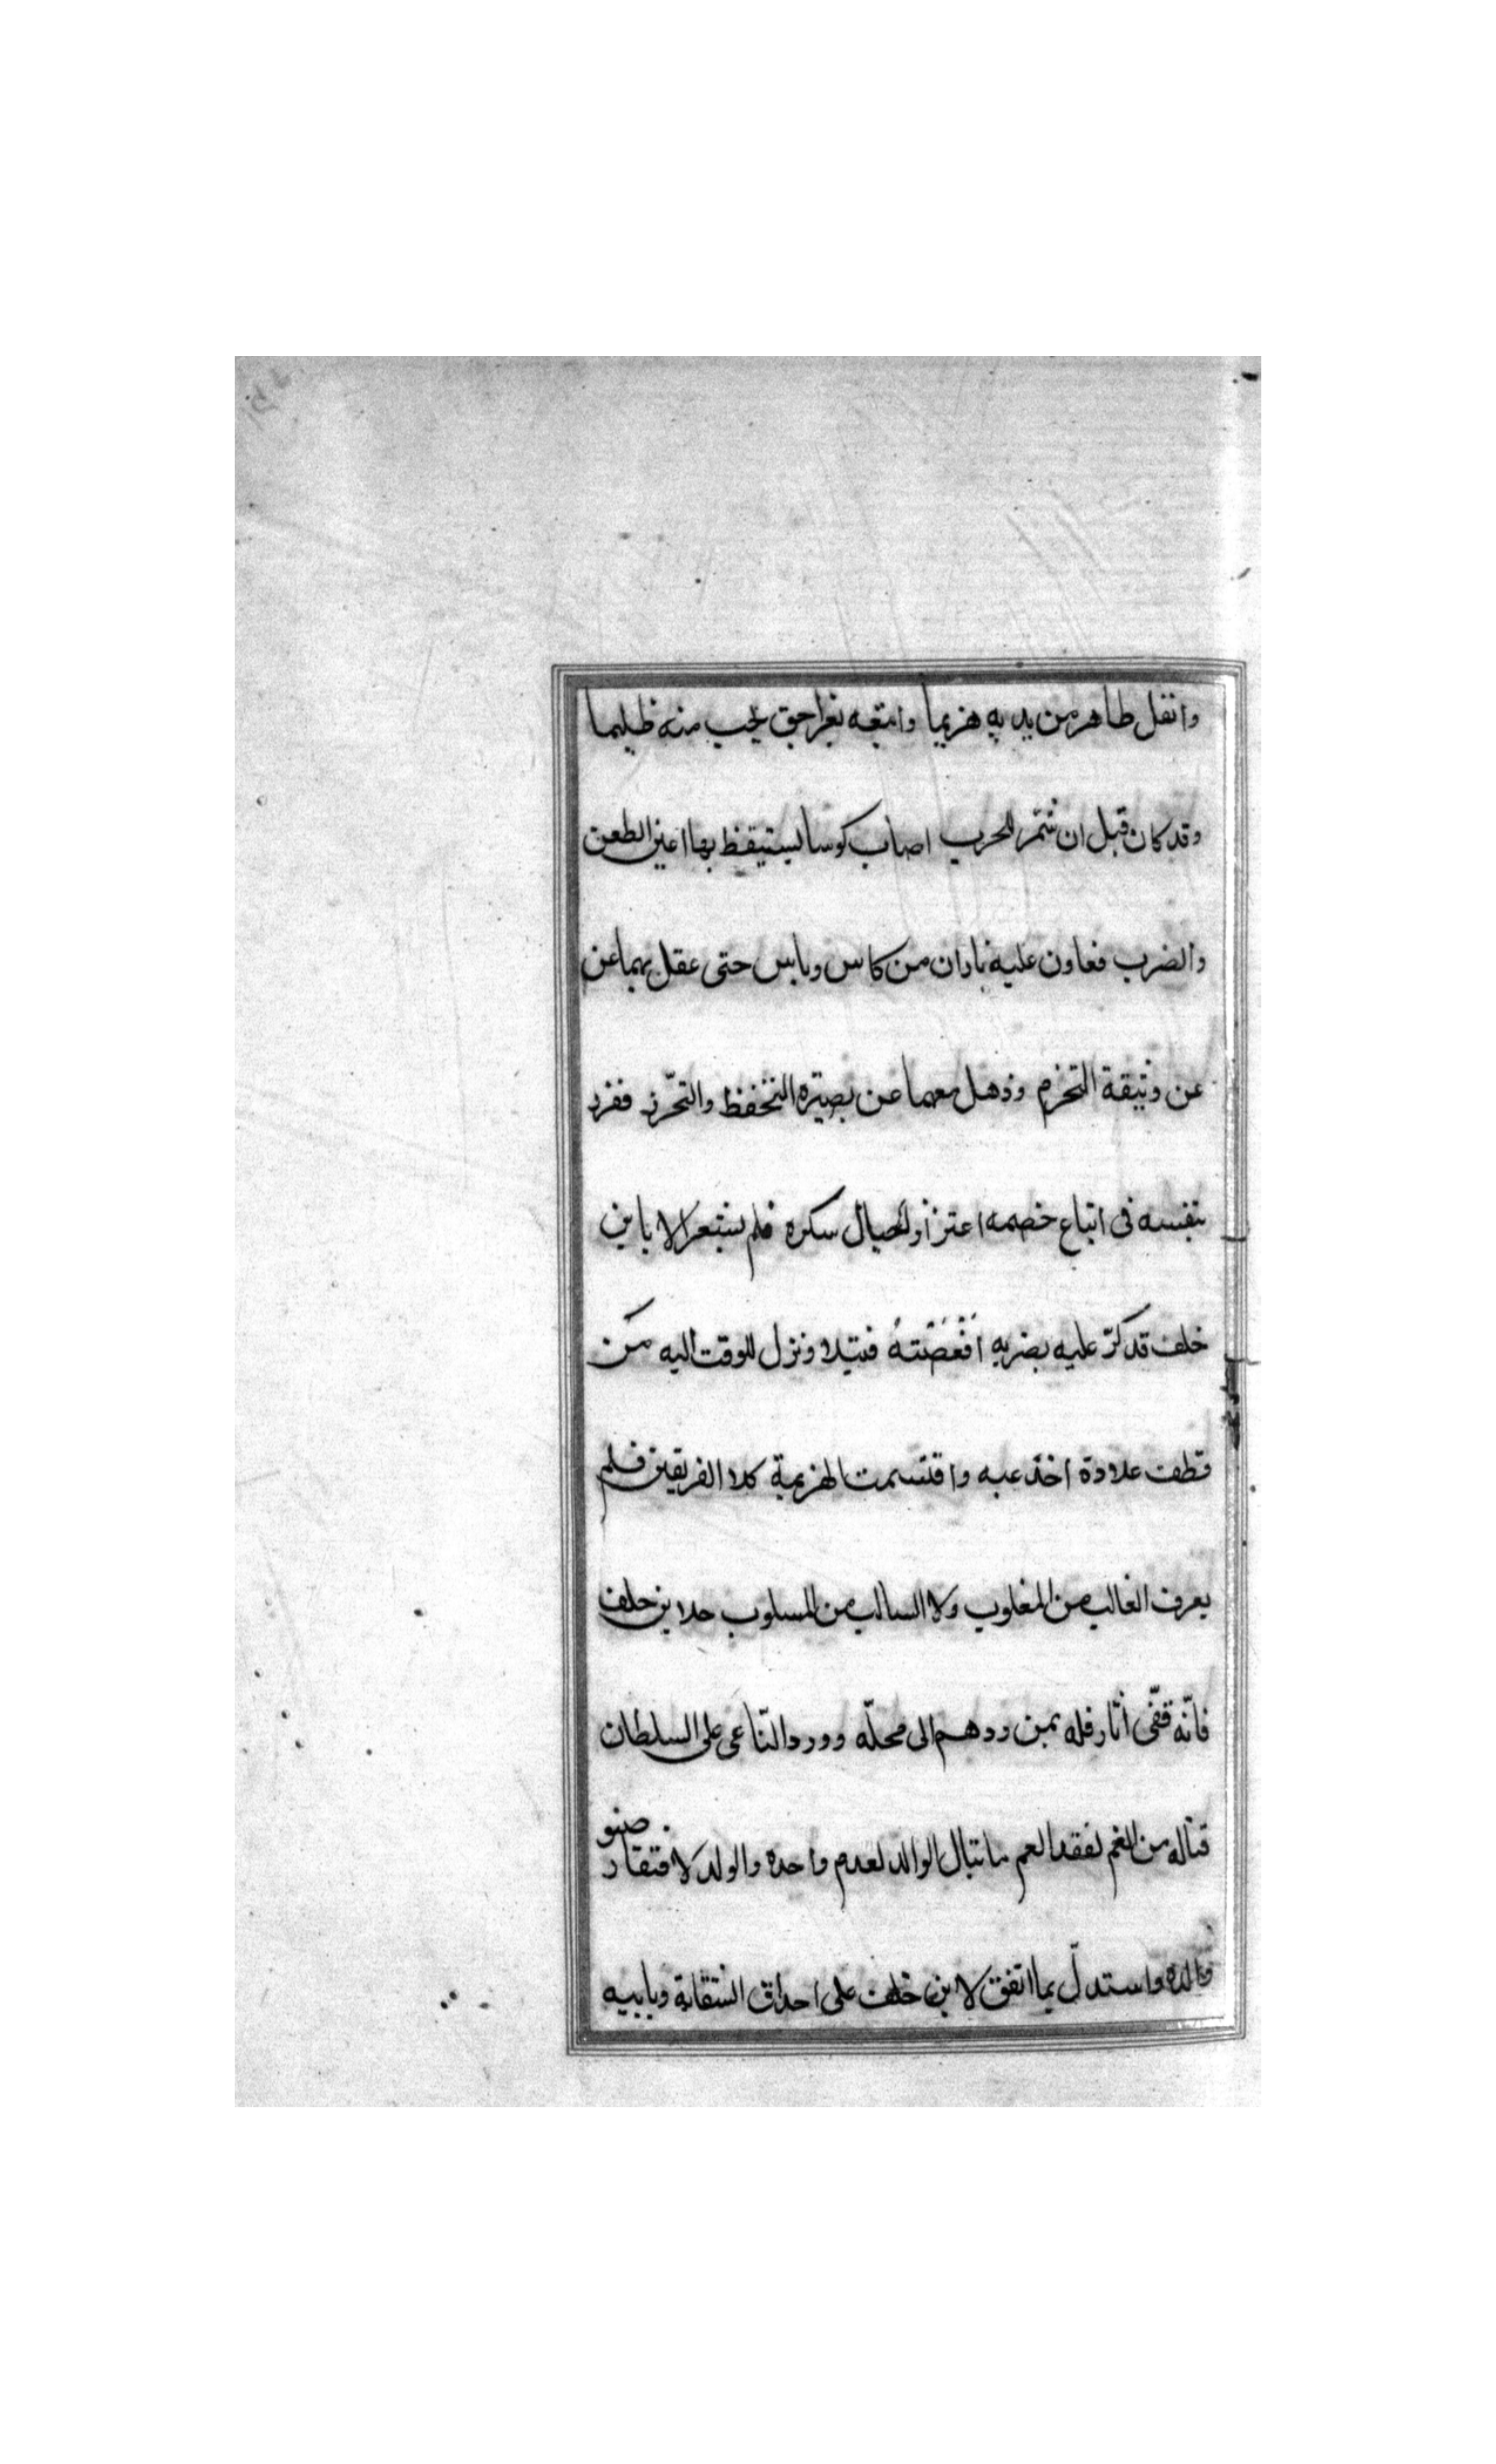 وانفل طاهر من يديه هزيما واتبعه بغراجق يجب منه ظليما
وقد كان قبل ان شمّر للحرب اصاب كوسا ليستيقظ بها اعين الطعن
والضرب فعاون عليه نادان من كاس وباس حتى عقل بهما عن
عن وثيقة التحزم وذهل معهما عن بصيرة التحفظ والتحّرز ففرد
بنفسه فى اتباع خصمه اعتزاز اولخيال سكره فلم يشعر الا بابن
خلف قد كرّ عليه بضربه اَقْعَصَتْهُ قتيلا ونزل للوقت اليه من
قطف علاوة اخدعيه واقتسمت الهزيمة كلا الفريقين فلم
يعرف الغالب من المغلوب ولا السالب من المسلوب خلا بن خلف
فانّه قفّى اثار فله بمن ردهم الى محلّه وورد النّاعى على السلطان
فناله من الغم لفقد العم ما ينال الوالد لعدم واحده والولد لافتقاد صنو
والده واستدلّ بما اتفق لابن خلف على احداق الشقاة به وبابيه